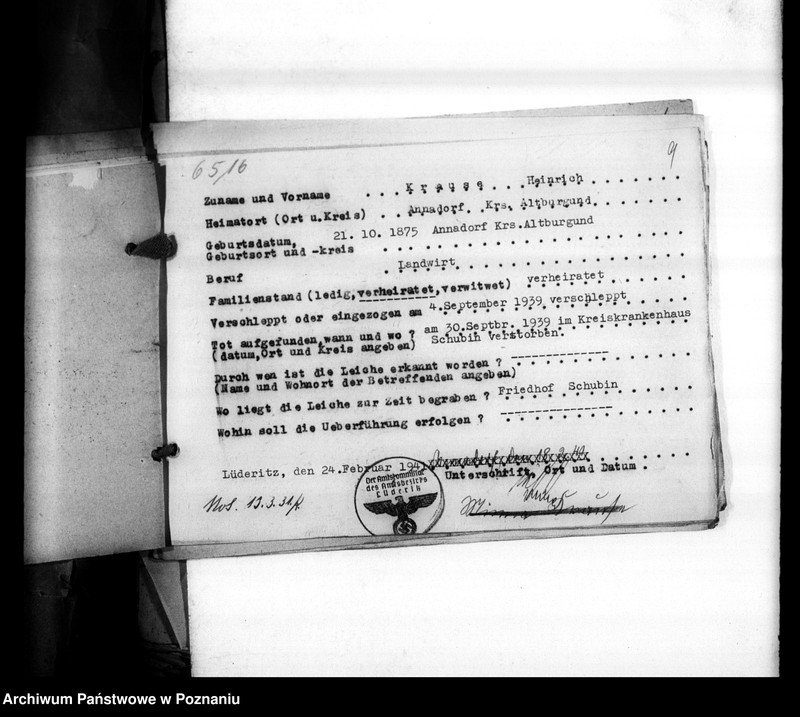 65/16
9
Zuname und Vorname . . . Krause . . . Heinrich . . . . . . .
Heimatort (Ort u.Kreis) . . Annadorf Krs. Altburgund
Geburtsdatum, 21. 10. 1875 Annadorf Krs.Altburgund
Geburtsort und -kreis
Beruf Landwirt
Familienstand (ledig,verheiratet,verwitwet) verheiratet
Verschleppt oder eingezogen am 4.September 1939 verschleppt
Tot aufgefunden,wann und wo ? am 30.Septbr. 1939 im Kreiskrankenhaus
(datum,Ort und Kreis angeben) Schubin verstorben.
Durch wen ist die Leiche erkannt worden ? --------------
(Name und Wohnort der Betreffenden angeben)
Wo liegt die Leiche zur Zeit begraben ? Friedhof Schubin
Wohin soll die Ueberführung erfolgen ? ----------------
Lüderitz, den 24.Februar 1941
Unterschrift, Ort und Datum .
Der Amtskommissar
des Amtsbezirks
Lüderitz
13.3.
Archiwum Państwowe w Poznaniu